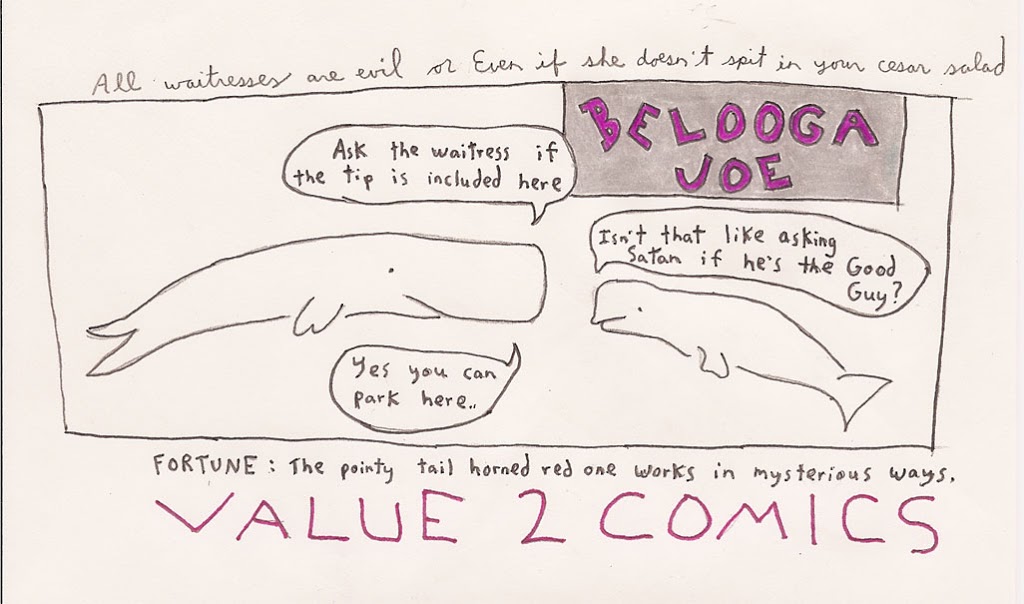 All waitresses are evil or Even if she doesn't spit in your cesar salad
BELOOGA
JOE
Ask the waitress if
the tip is included here
Isn't that like asking
Satan if he's the Good
Guy?
Yes you can
park here..
FORTUNE: The pointy tail horned red one works in mysterious ways.
VALUE 2 COMICS